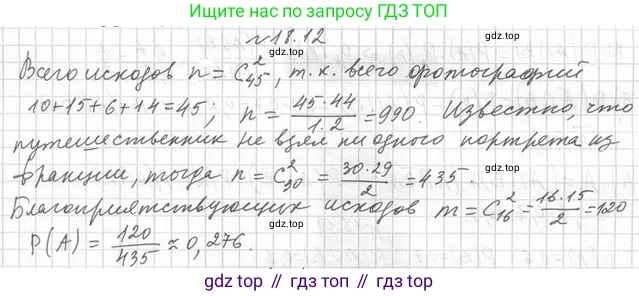 Ищите нас по запросу ГДЗ ТОП
gdz.top
№18.12
Всего исходов n = C²₄₅, т.к. всего фотографий
10+15+6+14=45; n = 45·44/1·2 = 990. Известно, что
путешественник не взял ни одного портрета из
Франции, тогда n = C²₃₀ = 30·29/2 = 435.
Благоприятствующих исходов m = C²₁₆ = 16·15/2 = 120
P(A) = 120/435 ≈ 0,276.
gdz.top // гдз.топ // gdz.top // гдз.топ